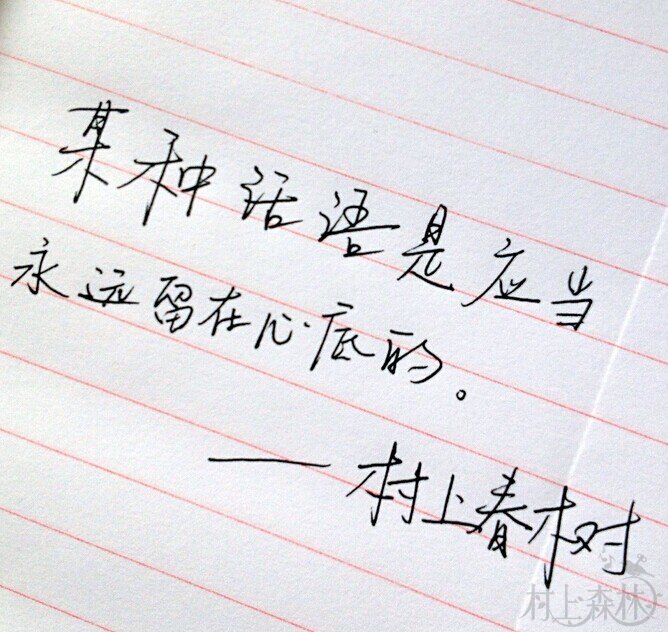 某种话语是应当
永远留在心底的。
——村上春树
村上森林